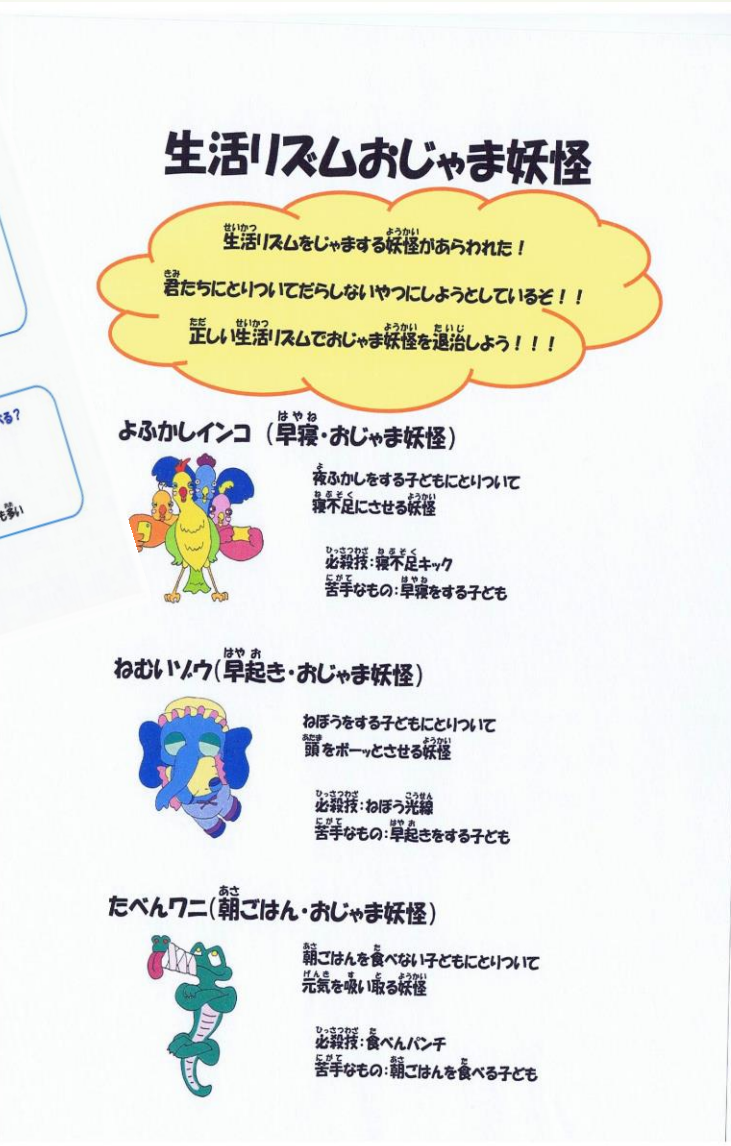 生活リズムおじゃま妖怪
生活リズムをじゃまする妖怪があらわれた！
君たちにとりついてだらしないやつにしようとしているぞ！！
正しい生活リズムでおじゃま妖怪を退治しよう！！！
べる？
も多い
よふかしインコ（早寝・おじゃま妖怪）
夜ふかしをする子どもにとりついて
寝不足にさせる妖怪
必殺技：寝不足キック
苦手なもの：早寝をする子ども
ねむいゾウ（早起き・おじゃま妖怪）
ねぼうをする子どもにとりついて
頭をボーッとさせる妖怪
必殺技：ねぼう光線
苦手なもの：早起きをする子ども
たべんワニ（朝ごはん・おじゃま妖怪）
朝ごはんを食べない子どもにとりついて
元気を吸い取る妖怪
必殺技：食べんパンチ
苦手なもの：朝ごはんを食べる子ども